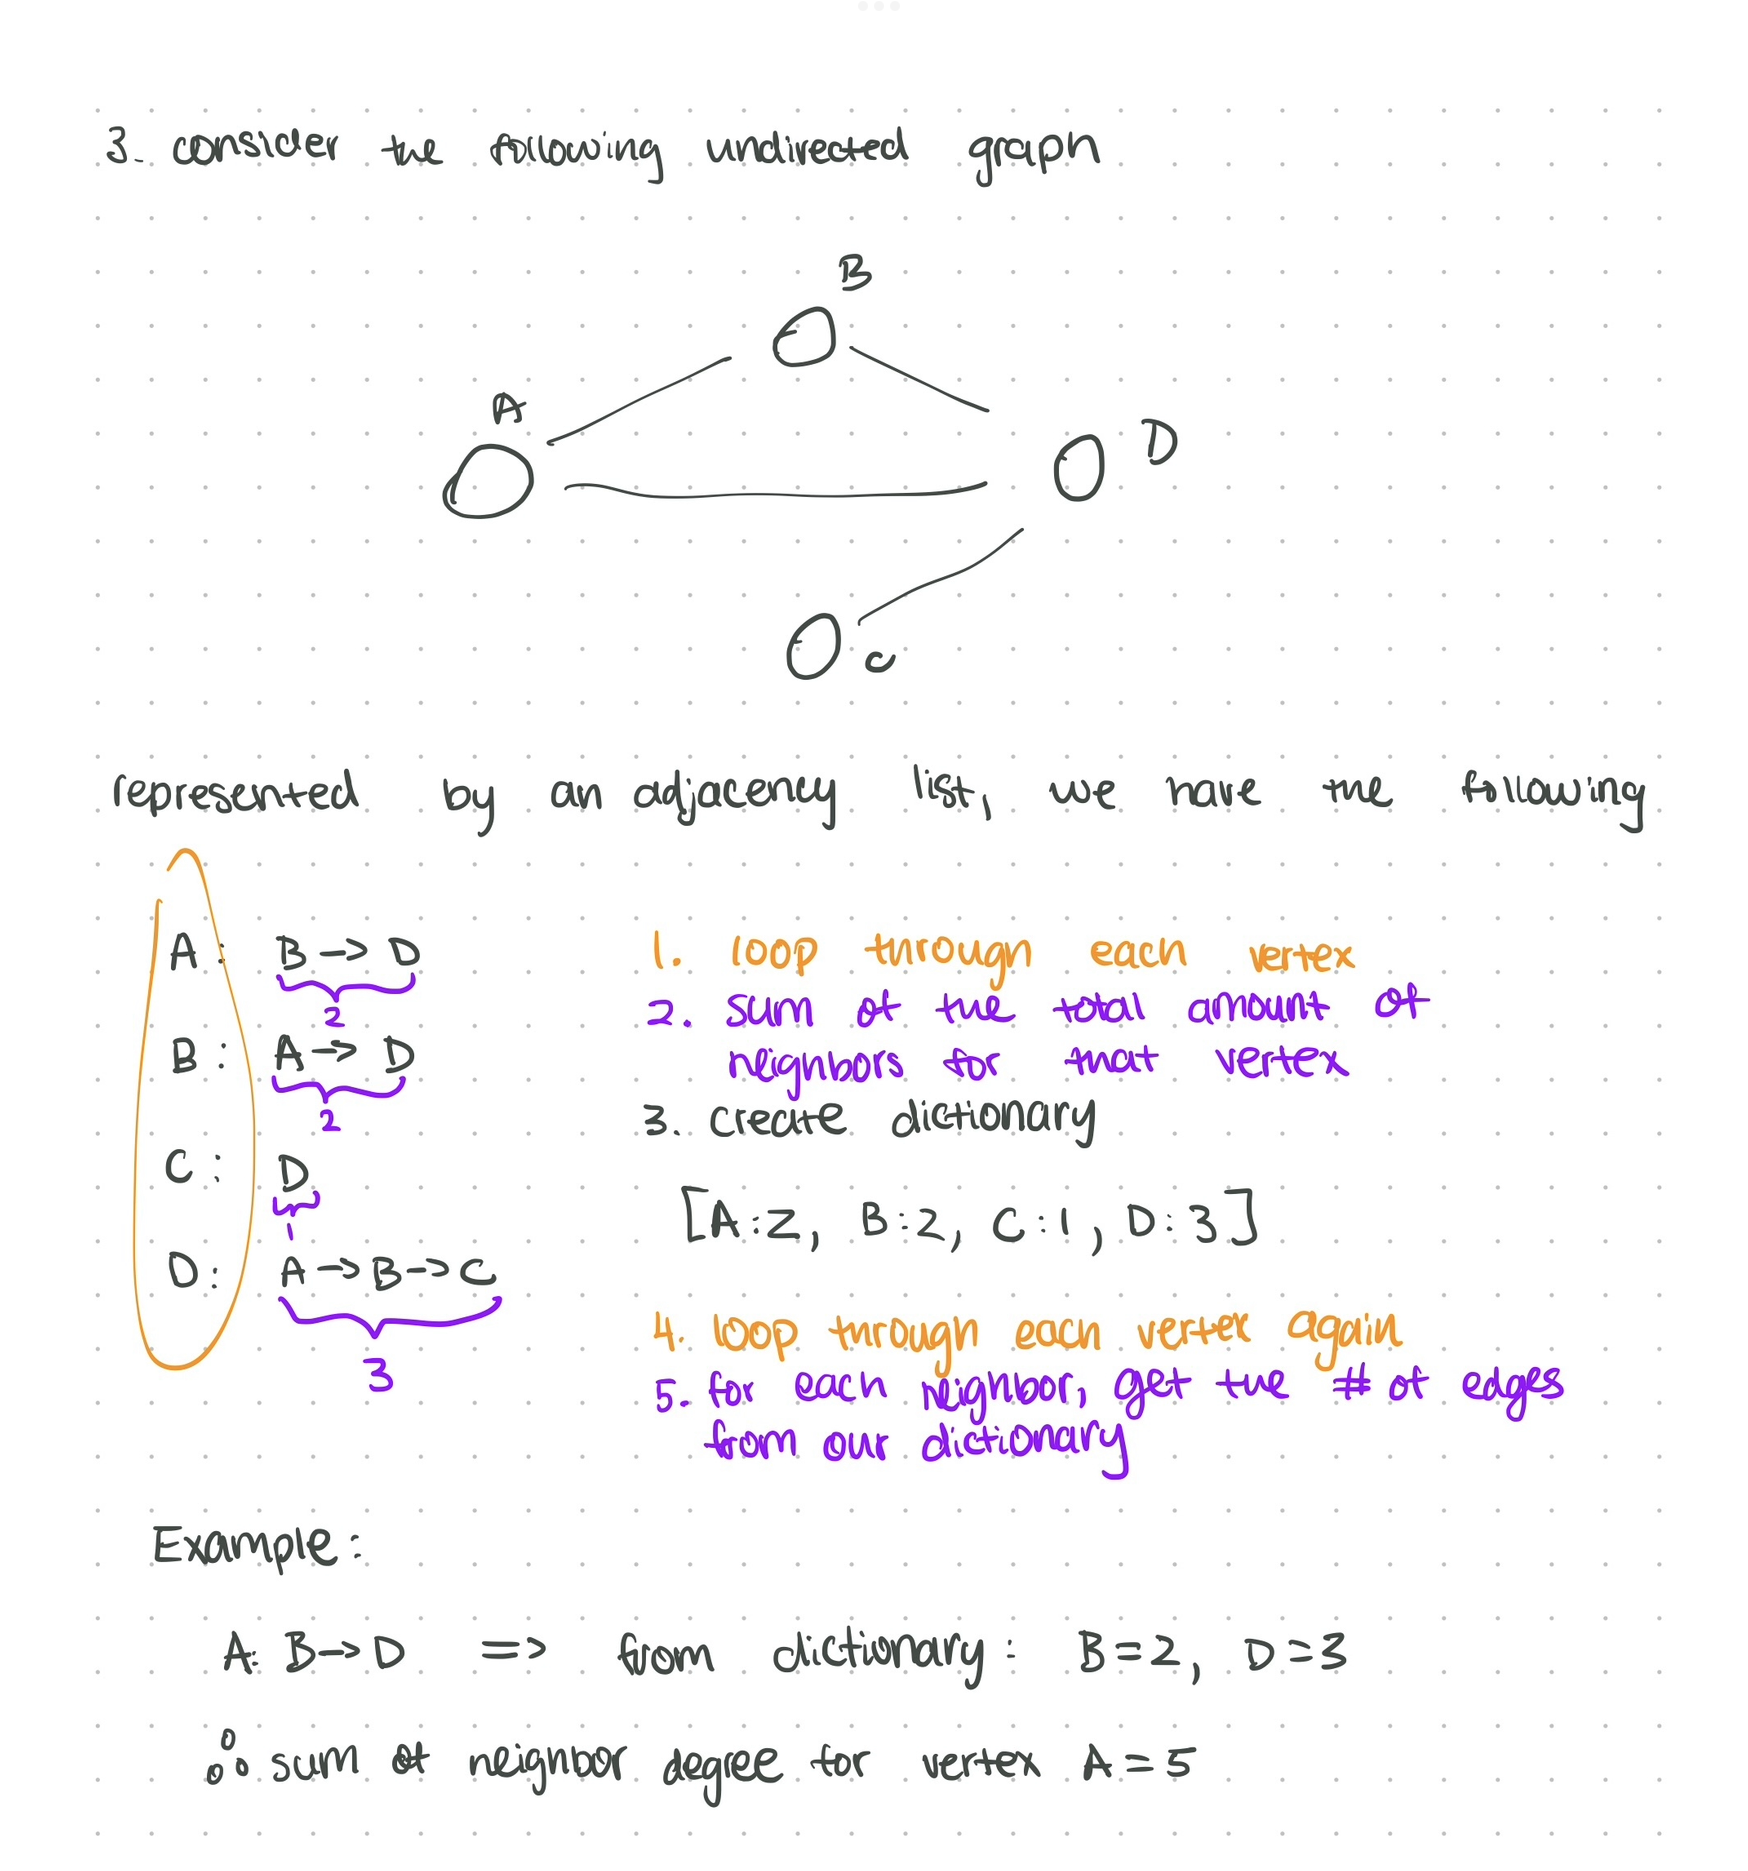 3. consider the following undirected graph
B
A
D
C
represented by an adjacency list, we have the following
A: B -> D
2
B: A -> D
2
C: D
1
D: A -> B -> C
3
1. loop through each vertex
2. sum of the total amount of
neighbors for that vertex
3. create dictionary
[A:2, B:2, C:1, D:3]
4. loop through each vertex again
5. for each neighbor, get the # of edges
from our dictionary
Example:
A: B -> D => from dictionary: B=2, D=3
∴ sum of neighbor degree for vertex A=5